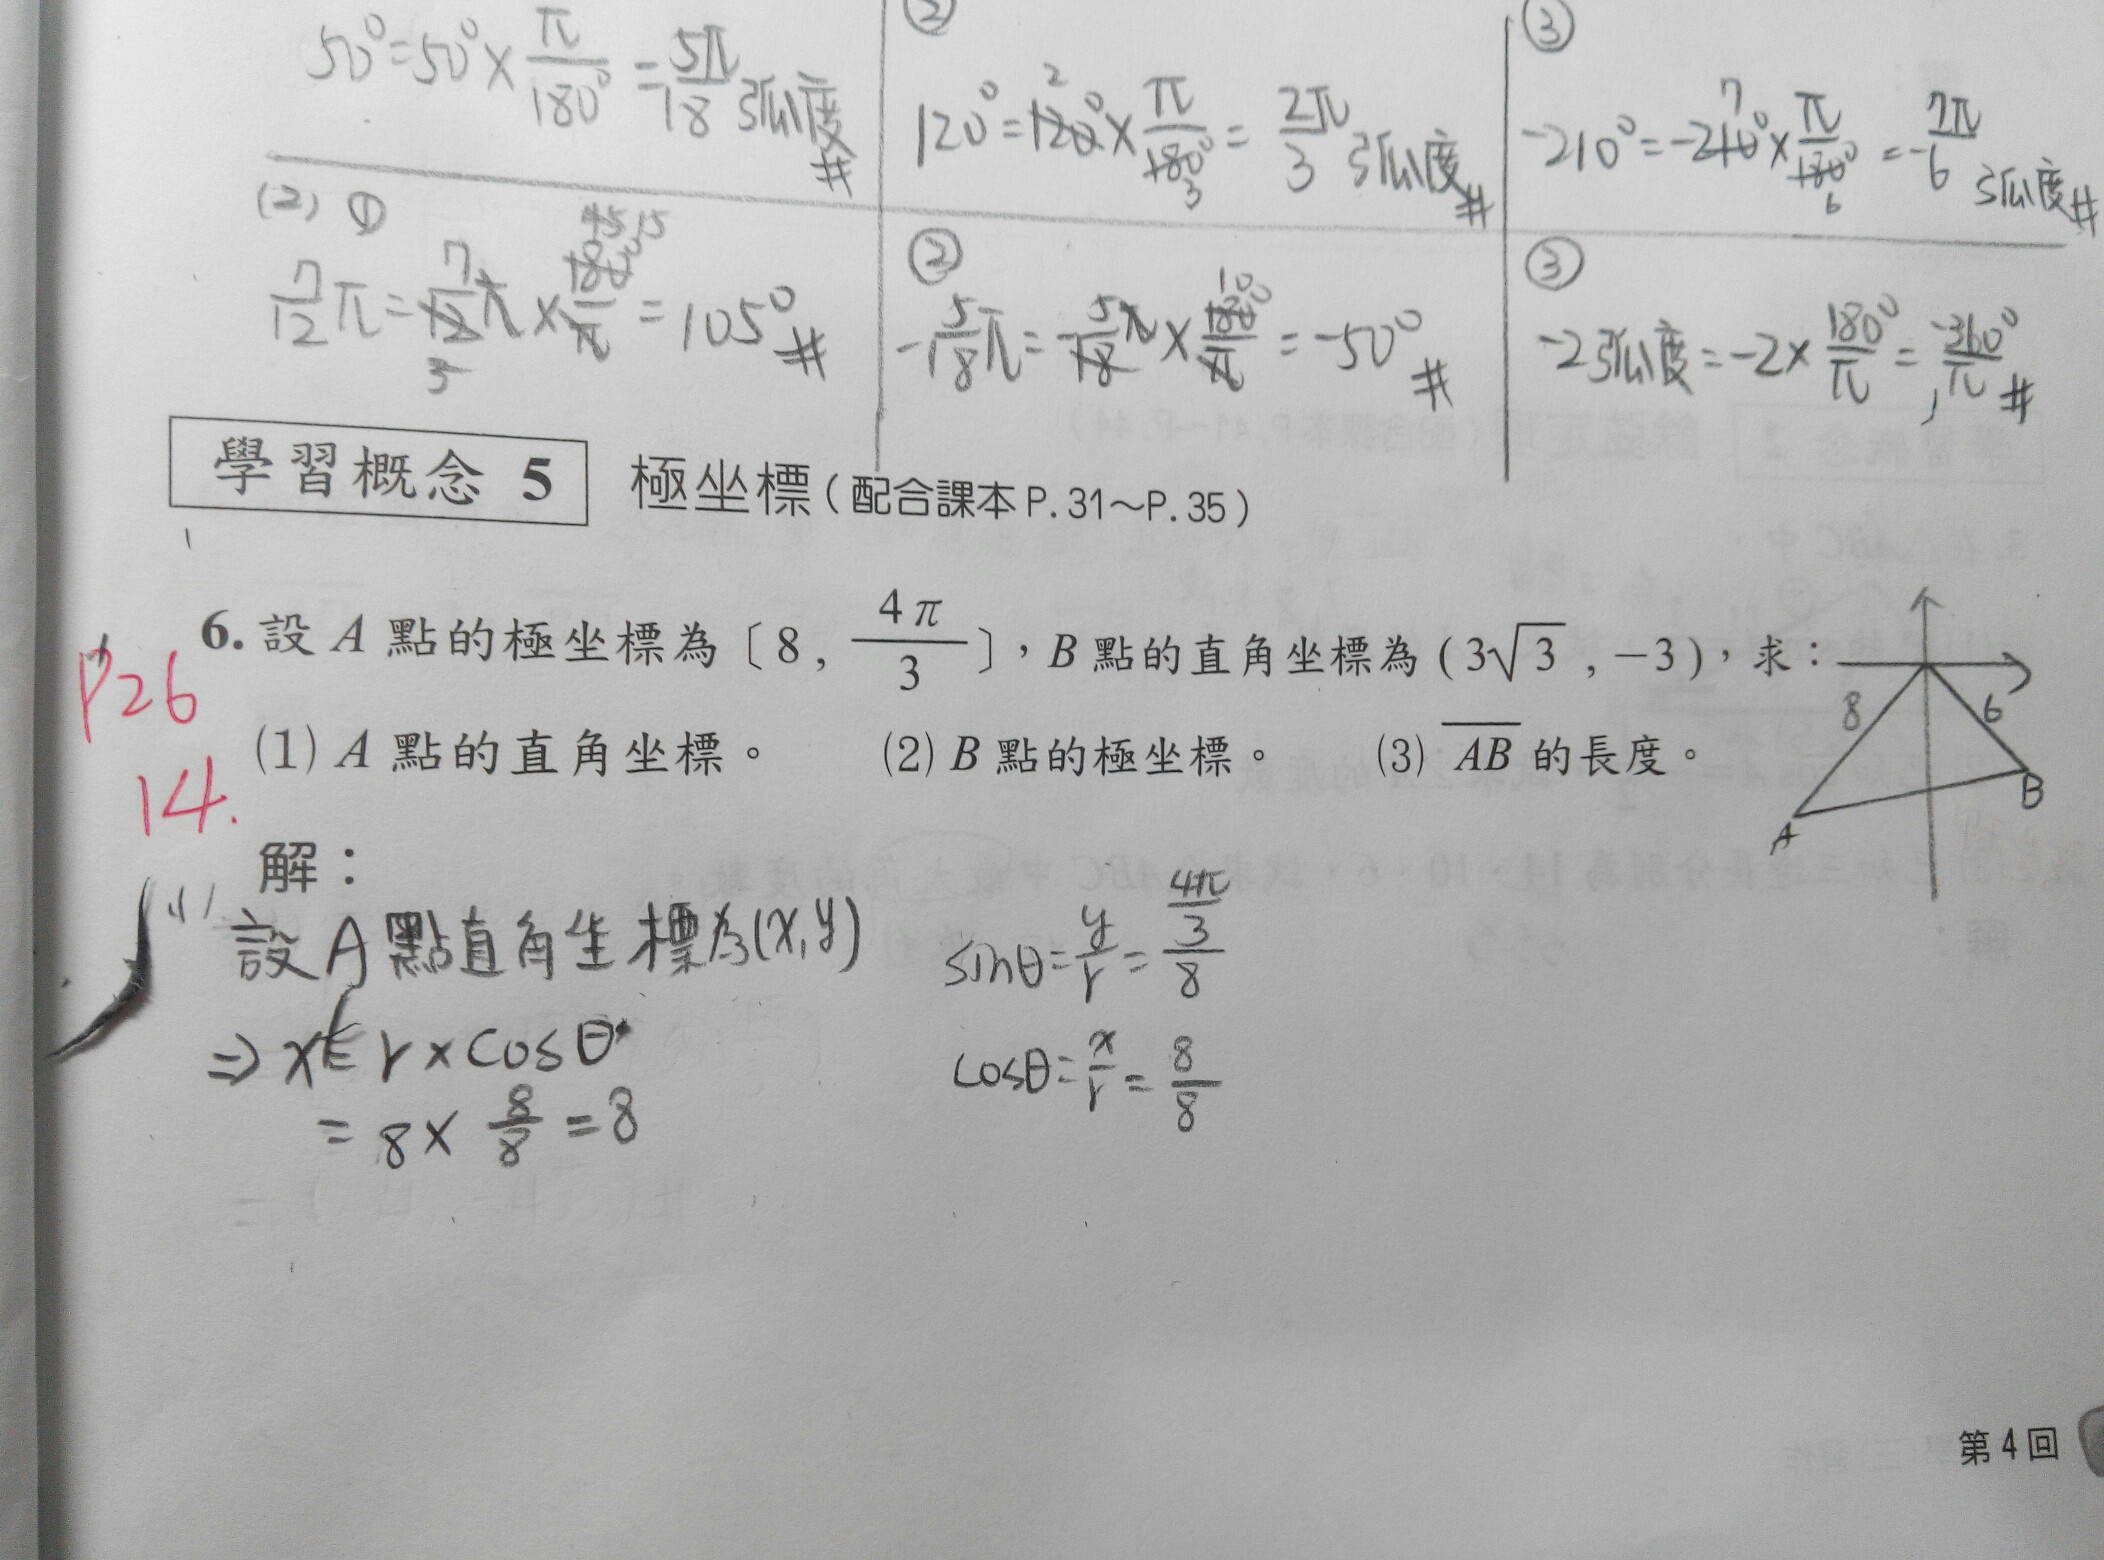 50°=50°×π/180°=5π/18 弧度#
②
120°=120°×π/180°=2π/3 弧度#
2
3
③
-210°=-210°×π/180°=-7π/6 弧度#
7
6
(2) ①
7/12π=7/12π×180°/π=105°#
45 15
3
②
-5/18π=-5/18π×180°/π=-50°#
10
③
-2弧度=-2×180°/π=-360°/π#
學習概念 5 極坐標(配合課本P.31~P.35)
6. 設 A 點的極坐標為〔8, 4π/3〕,B 點的直角坐標為 (3√3 , -3),求:
(1) A 點的直角坐標。 (2) B 點的極坐標。 (3) AB 的長度。
P26
14.
8
6
A
B
解:
(1)
設A點直角坐標為(x,y)
⇒ x=r×cosθ
=8×8/8=8
sinθ=y/r=4π/3/8
cosθ=x/r=8/8
第 4 回